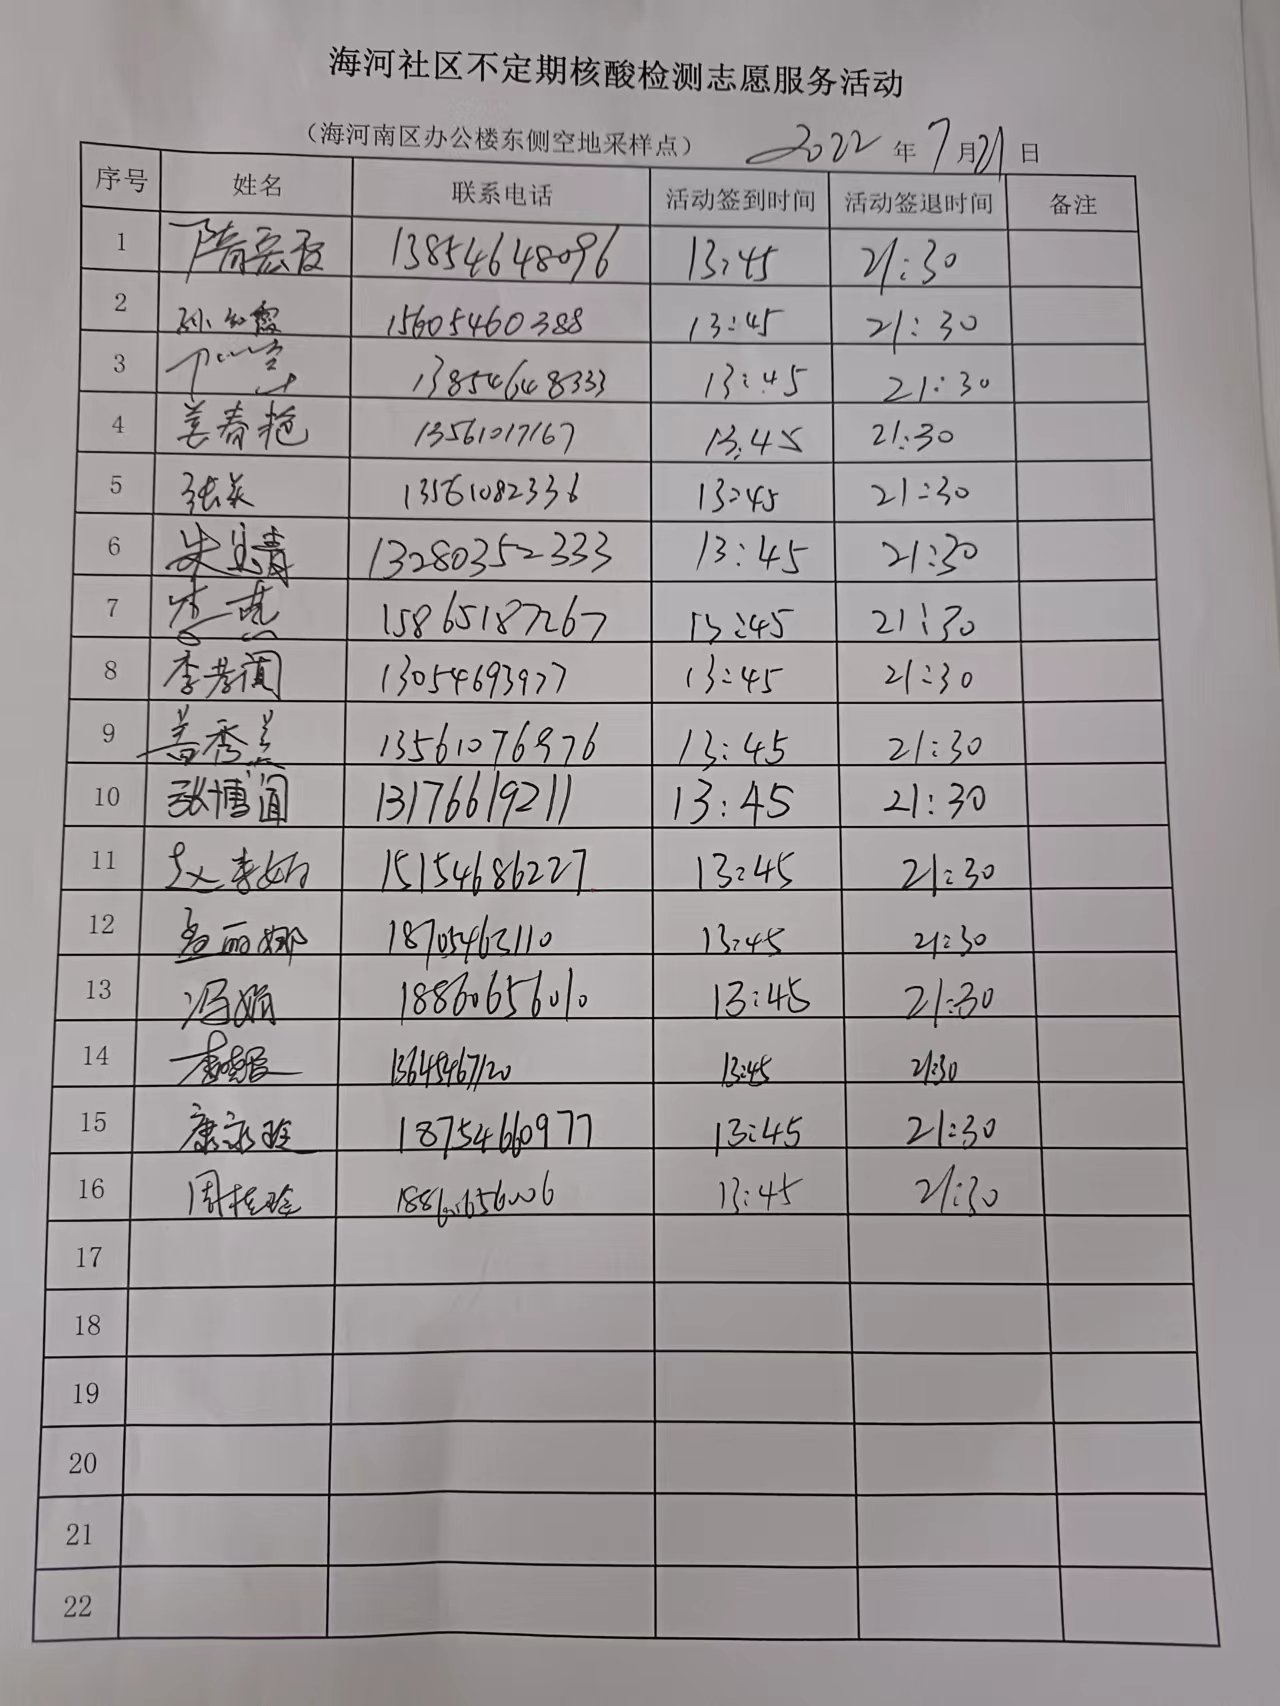 海河社区不定期核酸检测志愿服务活动
（海河南区办公楼东侧空地采样点） 2022 年 7 月 21 日
序号 姓名 联系电话 活动签到时间 活动签退时间 备注
1 13854648096 13:45 21:30
2 15605460388 13:45 21:30
3 13854648333 13:45 21:30
4 姜春艳 13561017167 13:45 21:30
5 张美 13561082336 13:45 21:30
6 13280352333 13:45 21:30
7 15865187267 13:45 21:30
8 李孝阗 13054693977 13:45 21:30
9 盖秀兰 13561076976 13:45 21:30
10 张博闻 13176619211 13:45 21:30
11 赵李娟 15154686227 13:45 21:30
12 孟丽娜 18705463110 13:45 21:30
13 冯娟 18860656010 13:45 21:30
14 13645467120 13:45 21:30
15 康永玲 18754660977 13:45 21:30
16 周桂玲 18860656006 13:45 21:30
17
18
19
20
21
22